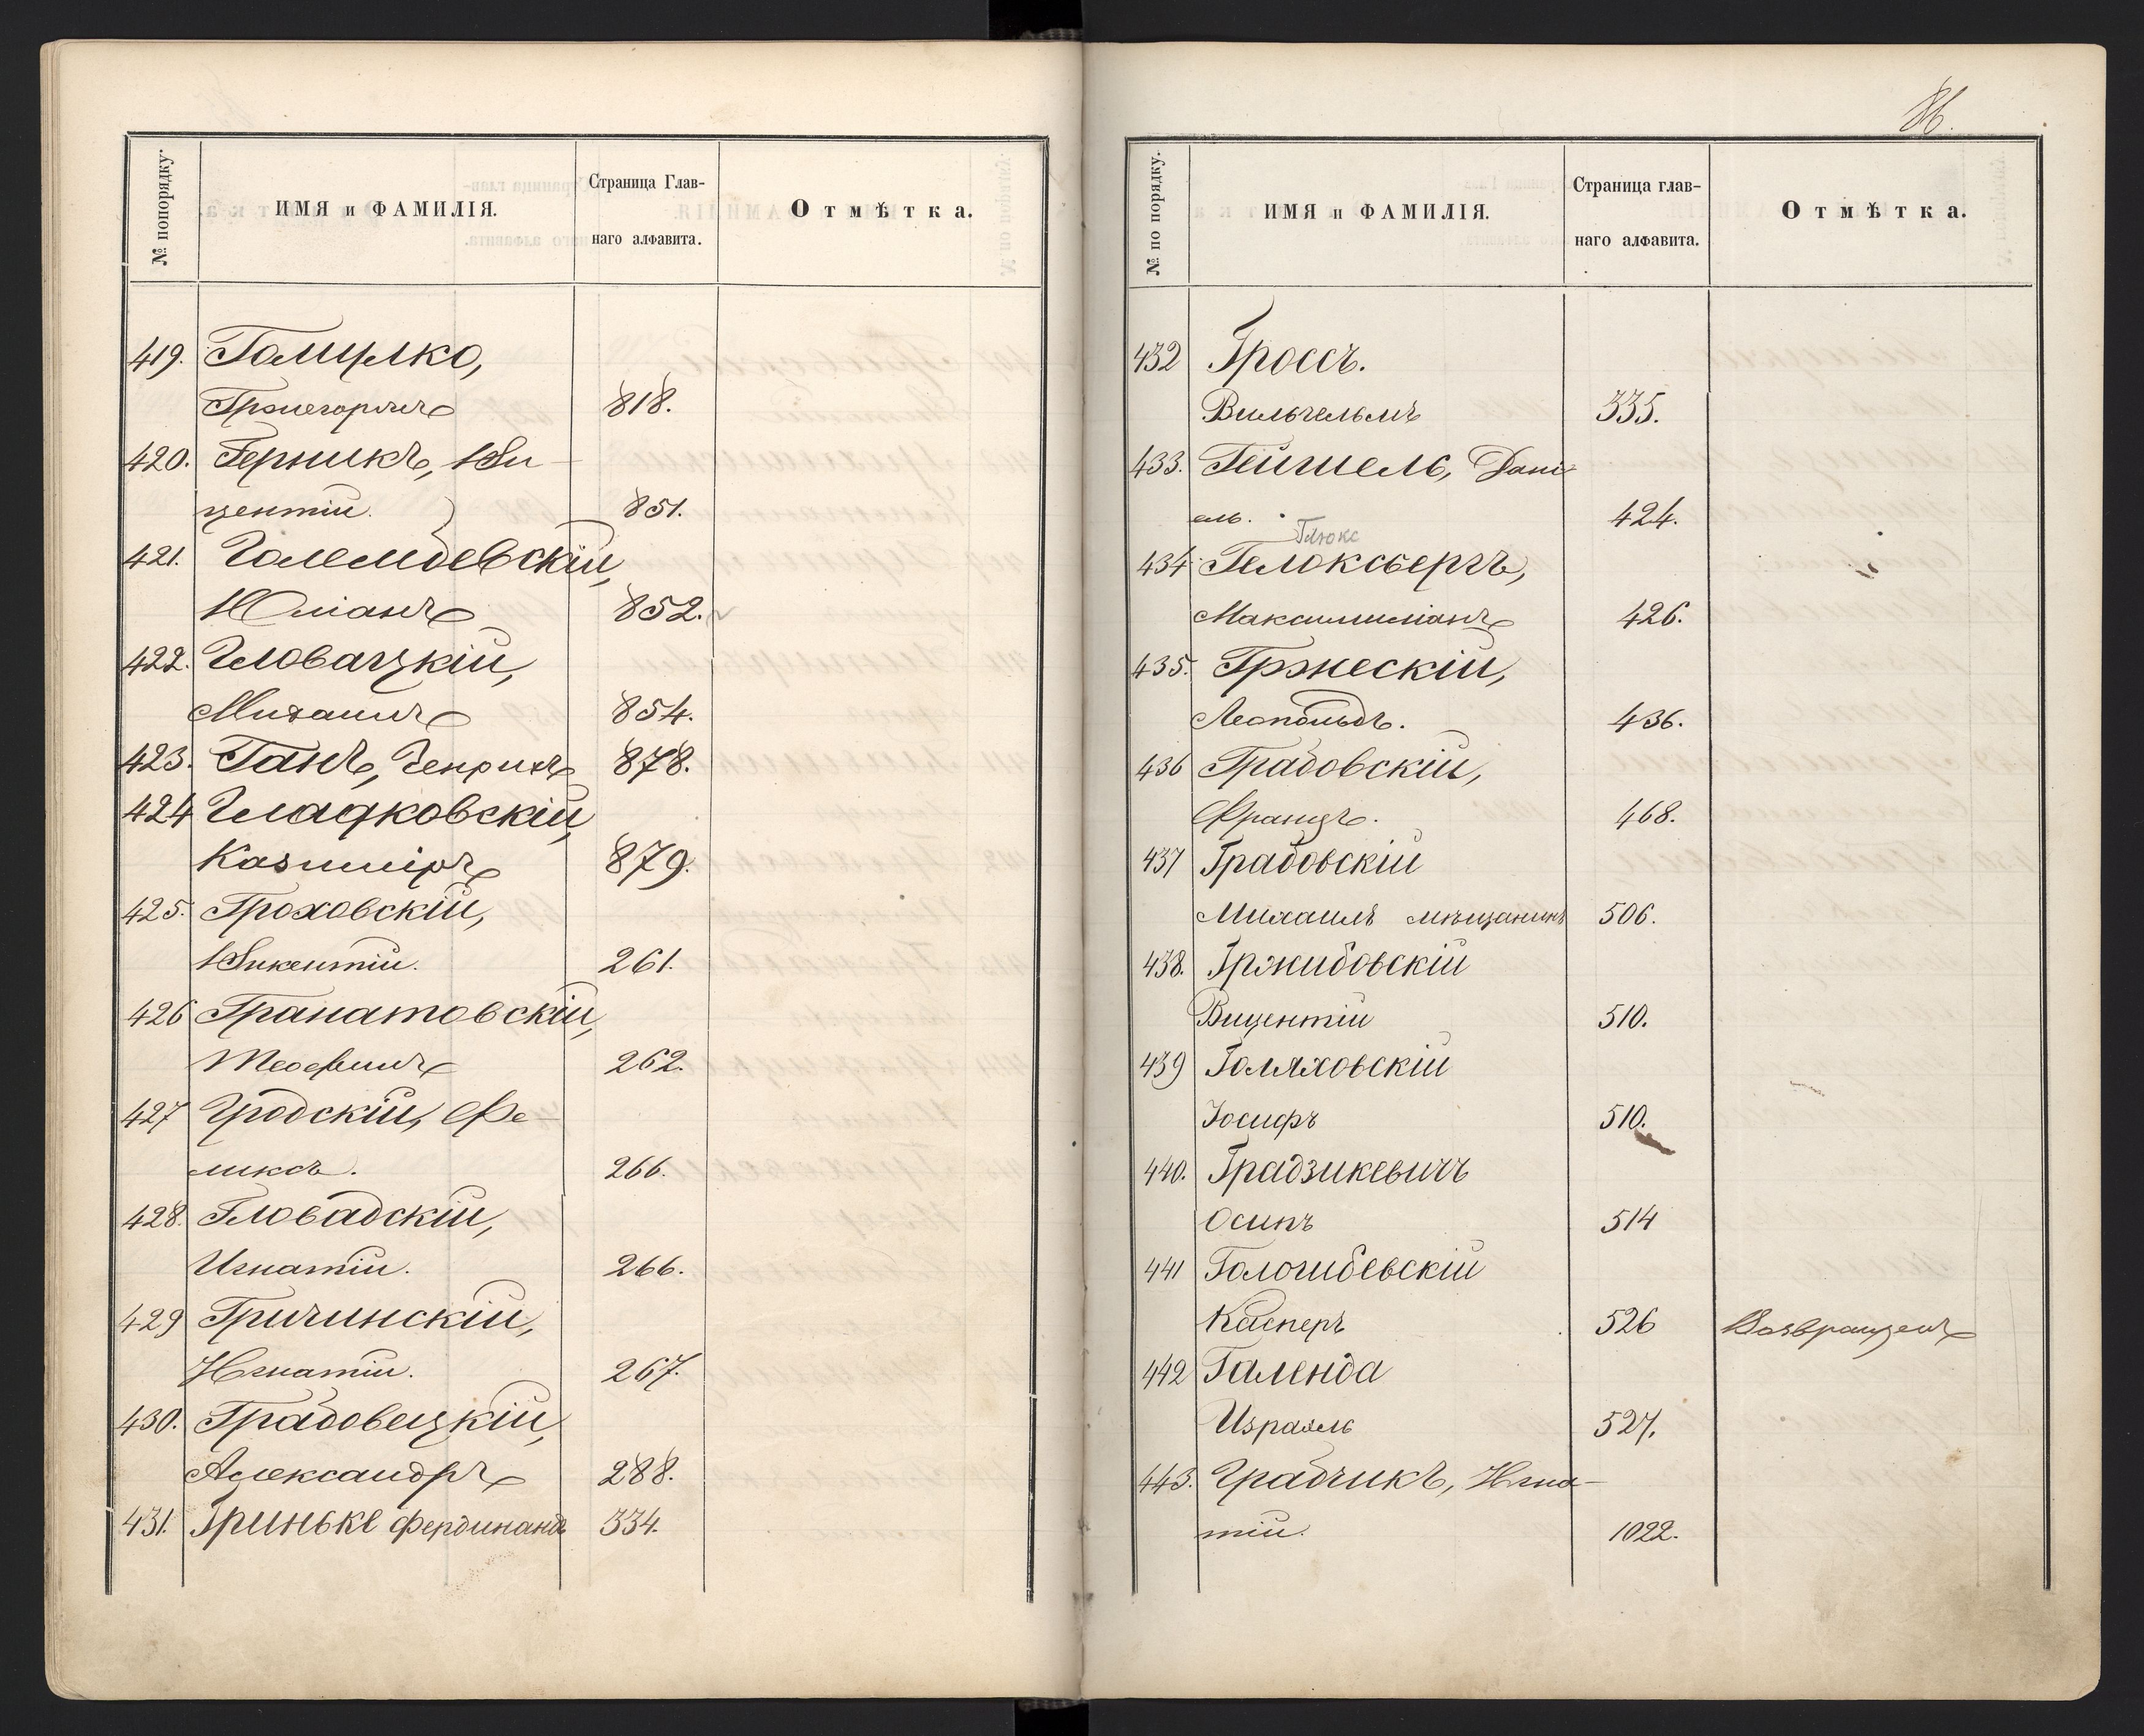 № попорядку.
ИМЯ и ФАМИЛІЯ.
Страница Глав-
наго алфавита.
Отмѣтка.
419. Гомулко,
Гржегоржъ 818.
420. Герникъ, Ви-
центій. 851.
421. Голембевскій,
Юліанъ 852.
422. Гловацкій,
Михаилъ 854.
423. Ганъ, Генрихъ 878.
424 Гладковскій,
Казиміръ 879.
425. Гроховскій,
Викентій. 261.
426 Гранатовскій,
Теофилъ 262.
427 Гродскій, Фе-
ликсъ. 266.
428. Гловадскій,
Игнатій. 266.
429 Гричинскій,
Игнатій. 267.
430. Грабовецкій,
Александръ 288.
431. Гриньке Фердинандъ 334.
86.
№ по порядку.
ИМЯ и ФАМИЛІЯ.
Страница глав-
наго алфавита.
Отмѣтка.
432 Гроссъ.
Вильгельмъ 335.
433. Гейшель, Дані-
ель. 424.
Глюкс
434 Гелоксбергъ,
Максимиліанъ 426.
435. Гржескій,
Леопольдъ. 436.
436 Грабовскій,
Францъ. 468.
437 Грабовскій
Михаилъ мѣщанинъ 506.
438. Гржибовскій
Вицентій 510.
439 Голяховскій
Іосифъ 510.
440. Градзикевичъ
Осипъ 514
441 Гологибевскій
Касперъ 526 Возвращенъ
442 Галенда
Израэль 527.
443. Грабчикъ, Игна-
тій. 1022.